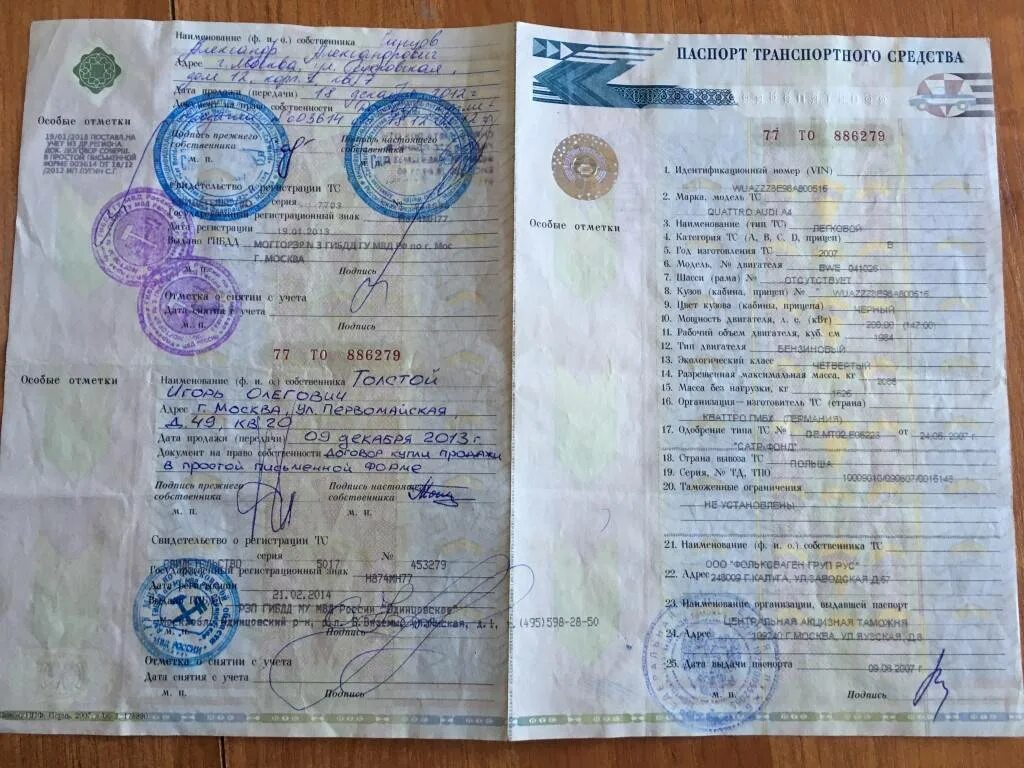 Наименование (ф. и. о.) собственника
Александр Александрович
Адрес г. Москва, ул.
дом 12, корп.
Дата продажи (передачи) 18 декабря 2012 г.
на право собственности
003614
Особые отметки
19/01/2013 ПОСТАВЛ.НА
УЧЕТ ИЗ ДР.РЕГИОНА.
ДОК. ДОГОВОР СОВЕРШ.
В ПРОСТОЙ ПИСЬМЕННОЙ
ФОРМЕ 003614 ОТ 18/12
/2012 ИП ЛУГИН С.Г.
Подпись прежнего
собственника
м. п.
Подпись настоящего
собственника
Свидетельство о регистрации ТС
серия 7703
Государственный регистрационный знак
Дата регистрации 19.01.2013
Выдано ГИБДД МОГТОРЭР N 3 ГИБДД ГУ МВД РФ по г. Мос
Г. МОСКВА
м. п.
Подпись
Отметка о снятии с учета
Дата снятия с учета
м. п.
Подпись
77 ТО 886279
Особые отметки
Наименование (ф. и. о.) собственника Толстой
Игорь Олегович
Адрес г. Москва, ул. Первомайская,
д. 49, кв 20
Дата продажи (передачи) 09 декабря 2013 г.
Документ на право собственности Договор купли продажи
в простой письменной форме
Подпись прежнего
собственника
м. п.
Подпись настоящего
собственника
м. п.
Свидетельство о регистрации ТС
СВИДЕТЕЛЬСТВО серия 5017 № 453279
Государственный регистрационный знак Н874МН77
Дата регистрации 21.02.2014
РЭП ГИБДД МУ МВД России "Одинцовское"
Одинцовский р-н, (495)598-28-50
м. п.
Подпись
Отметка о снятии с учета
Дата снятия с учета
м. п.
Подпись
ПАСПОРТ ТРАНСПОРТНОГО СРЕДСТВА
77 ТО 886279
Особые отметки
1. Идентификационный номер (VIN)
WUAZZZ8E98A800516
2. Марка, модель ТС
QUATTRO AUDI A4
3. Наименование (тип ТС) ЛЕГКОВОЙ
4. Категория ТС (А, В, С, D, прицеп) B
5. Год изготовления ТС 2007
6. Модель, № двигателя BWE 041026
7. Шасси (рама) № ОТСУТСТВУЕТ
8. Кузов (кабина, прицеп) № WUAZZZ8E98A800516
9. Цвет кузова (кабины, прицепа) ЧЕРНЫЙ
10. Мощность двигателя, л. с. (кВт) 200.00 (147.00)
11. Рабочий объем двигателя, куб. см 1984
12. Тип двигателя БЕНЗИНОВЫЙ
13. Экологический класс ЧЕТВЕРТЫЙ
14. Разрешенная максимальная масса, кг
15. Масса без нагрузки, кг
16. Организация—изготовитель ТС (страна)
КВАТТРО ГМБХ (ГЕРМАНИЯ)
17. Одобрение типа ТС № DE.MT02.E06223 от 24.05.2007 г.
"САТР-ФОНД"
18. Страна вывоза ТС ПОЛЬША
19. Серия, № ТД, ТПО 10009010/090607/0016148
20. Таможенные ограничения
НЕ УСТАНОВЛЕНЫ
21. Наименование (ф. и. о.) собственника ТС
ООО "ФОЛЬКСВАГЕН ГРУП РУС"
22. Адрес 248009 Г.КАЛУГА, УЛ.ЗАВОДСКАЯ Д.57
23. Наименование организации, выдавшей паспорт
ЦЕНТРАЛЬНАЯ АКЦИЗНАЯ ТАМОЖНЯ
24. Адрес 109240 Г.МОСКВА, УЛ ЯУЗСКАЯ, Д.8
25. Дата выдачи паспорта 09.06.2007 г.
м. п.
Подпись